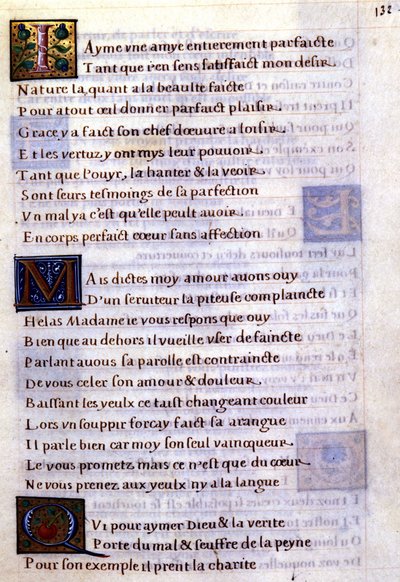 132
IAyme vne amye entierement parfaicte
Tant que i'en sens satisfaict mon desir
Nature la, quant a la beaulte faicte
Pour a tout œul donner parfaict plaisir
Grace y a faict son chef dœuure a loisir
Et les vertuz y ont mys leur pouuoir
Tant que l'ouyr, la hanter & la veoir
Sont seurs tesmoings de sa perfection
Vn mal y a c'est qu'elle peult auoir
En corps perfaict cœur sans affection
MAis dictes moy amour auons ouy
D'un seruiteur la piteuse complaincte
Helas Madame ie vous respons que ouy
Bien que au dehors il vueille vser de faincte
Parlant a vous sa parolle est contraincte
De vous celer son amour & douleur
Baissant les yeulx ce taist changeant couleur
Lors vn souppir forcay faict sa arangue
Il parle bien car moy son seul vaincqueur
Le vous prometz mais ce n'est que du cœur
Ne vous prenez aux yeulx ny a la langue
QVi pour aymer Dieu & la verite
Porte du mal & seuffre de la peyne
Pour son exemple il prent la charite